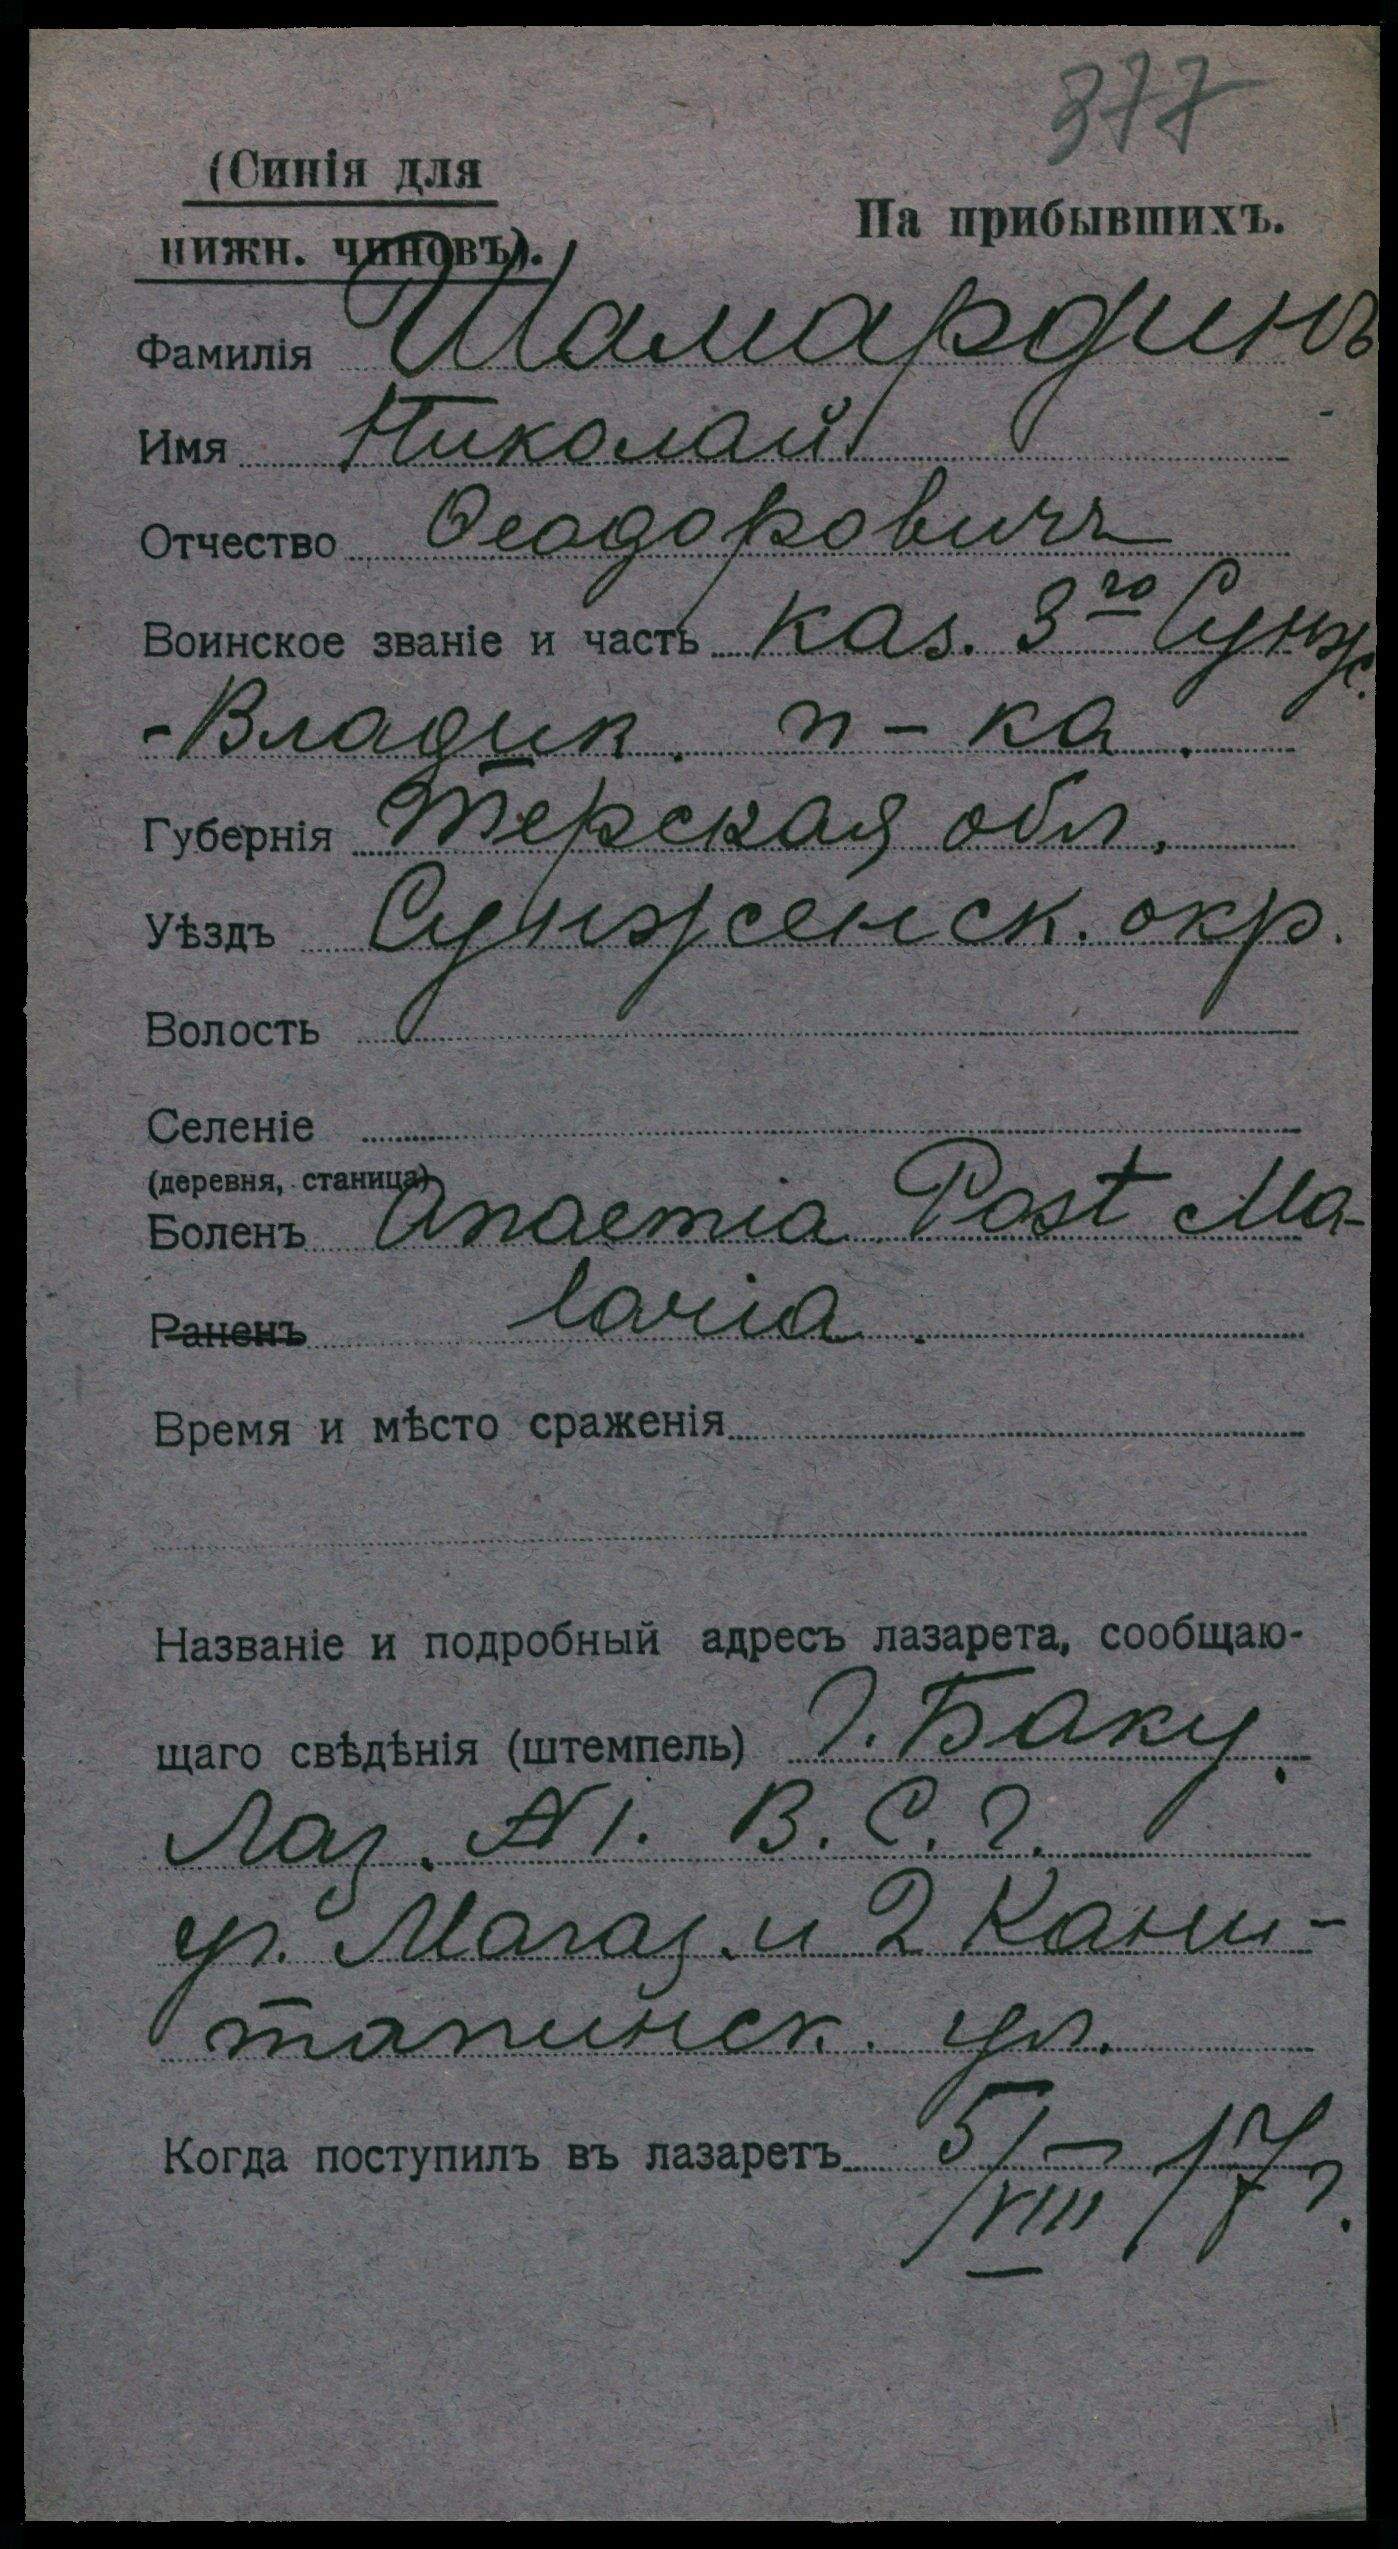 377
(Синія для
нижн. чиновъ).
На прибывшихъ.
Фамилія Шамардинъ
Имя Николай
Отчество Ѳеодоровичъ
Воинское званіе и часть каз. 3го Сунж.
-Владик. п-ка.
Губернія Терская обл.
Уѣздъ Сунженск. окр.
Волость
Селеніе
(деревня, станица)
Боленъ Anaemia Post Ma-
Раненъ laria.
Время и мѣсто сраженія
Названіе и подробный адресъ лазарета, сообщаю-
щаго свѣдѣнія (штемпель) г. Баку.
Лаз. № 1. В. С. Г.
уг. Магаз. и 2 Канни-
тапинск. ул.
Когда поступилъ въ лазаретъ 5/VIII – 17 г.